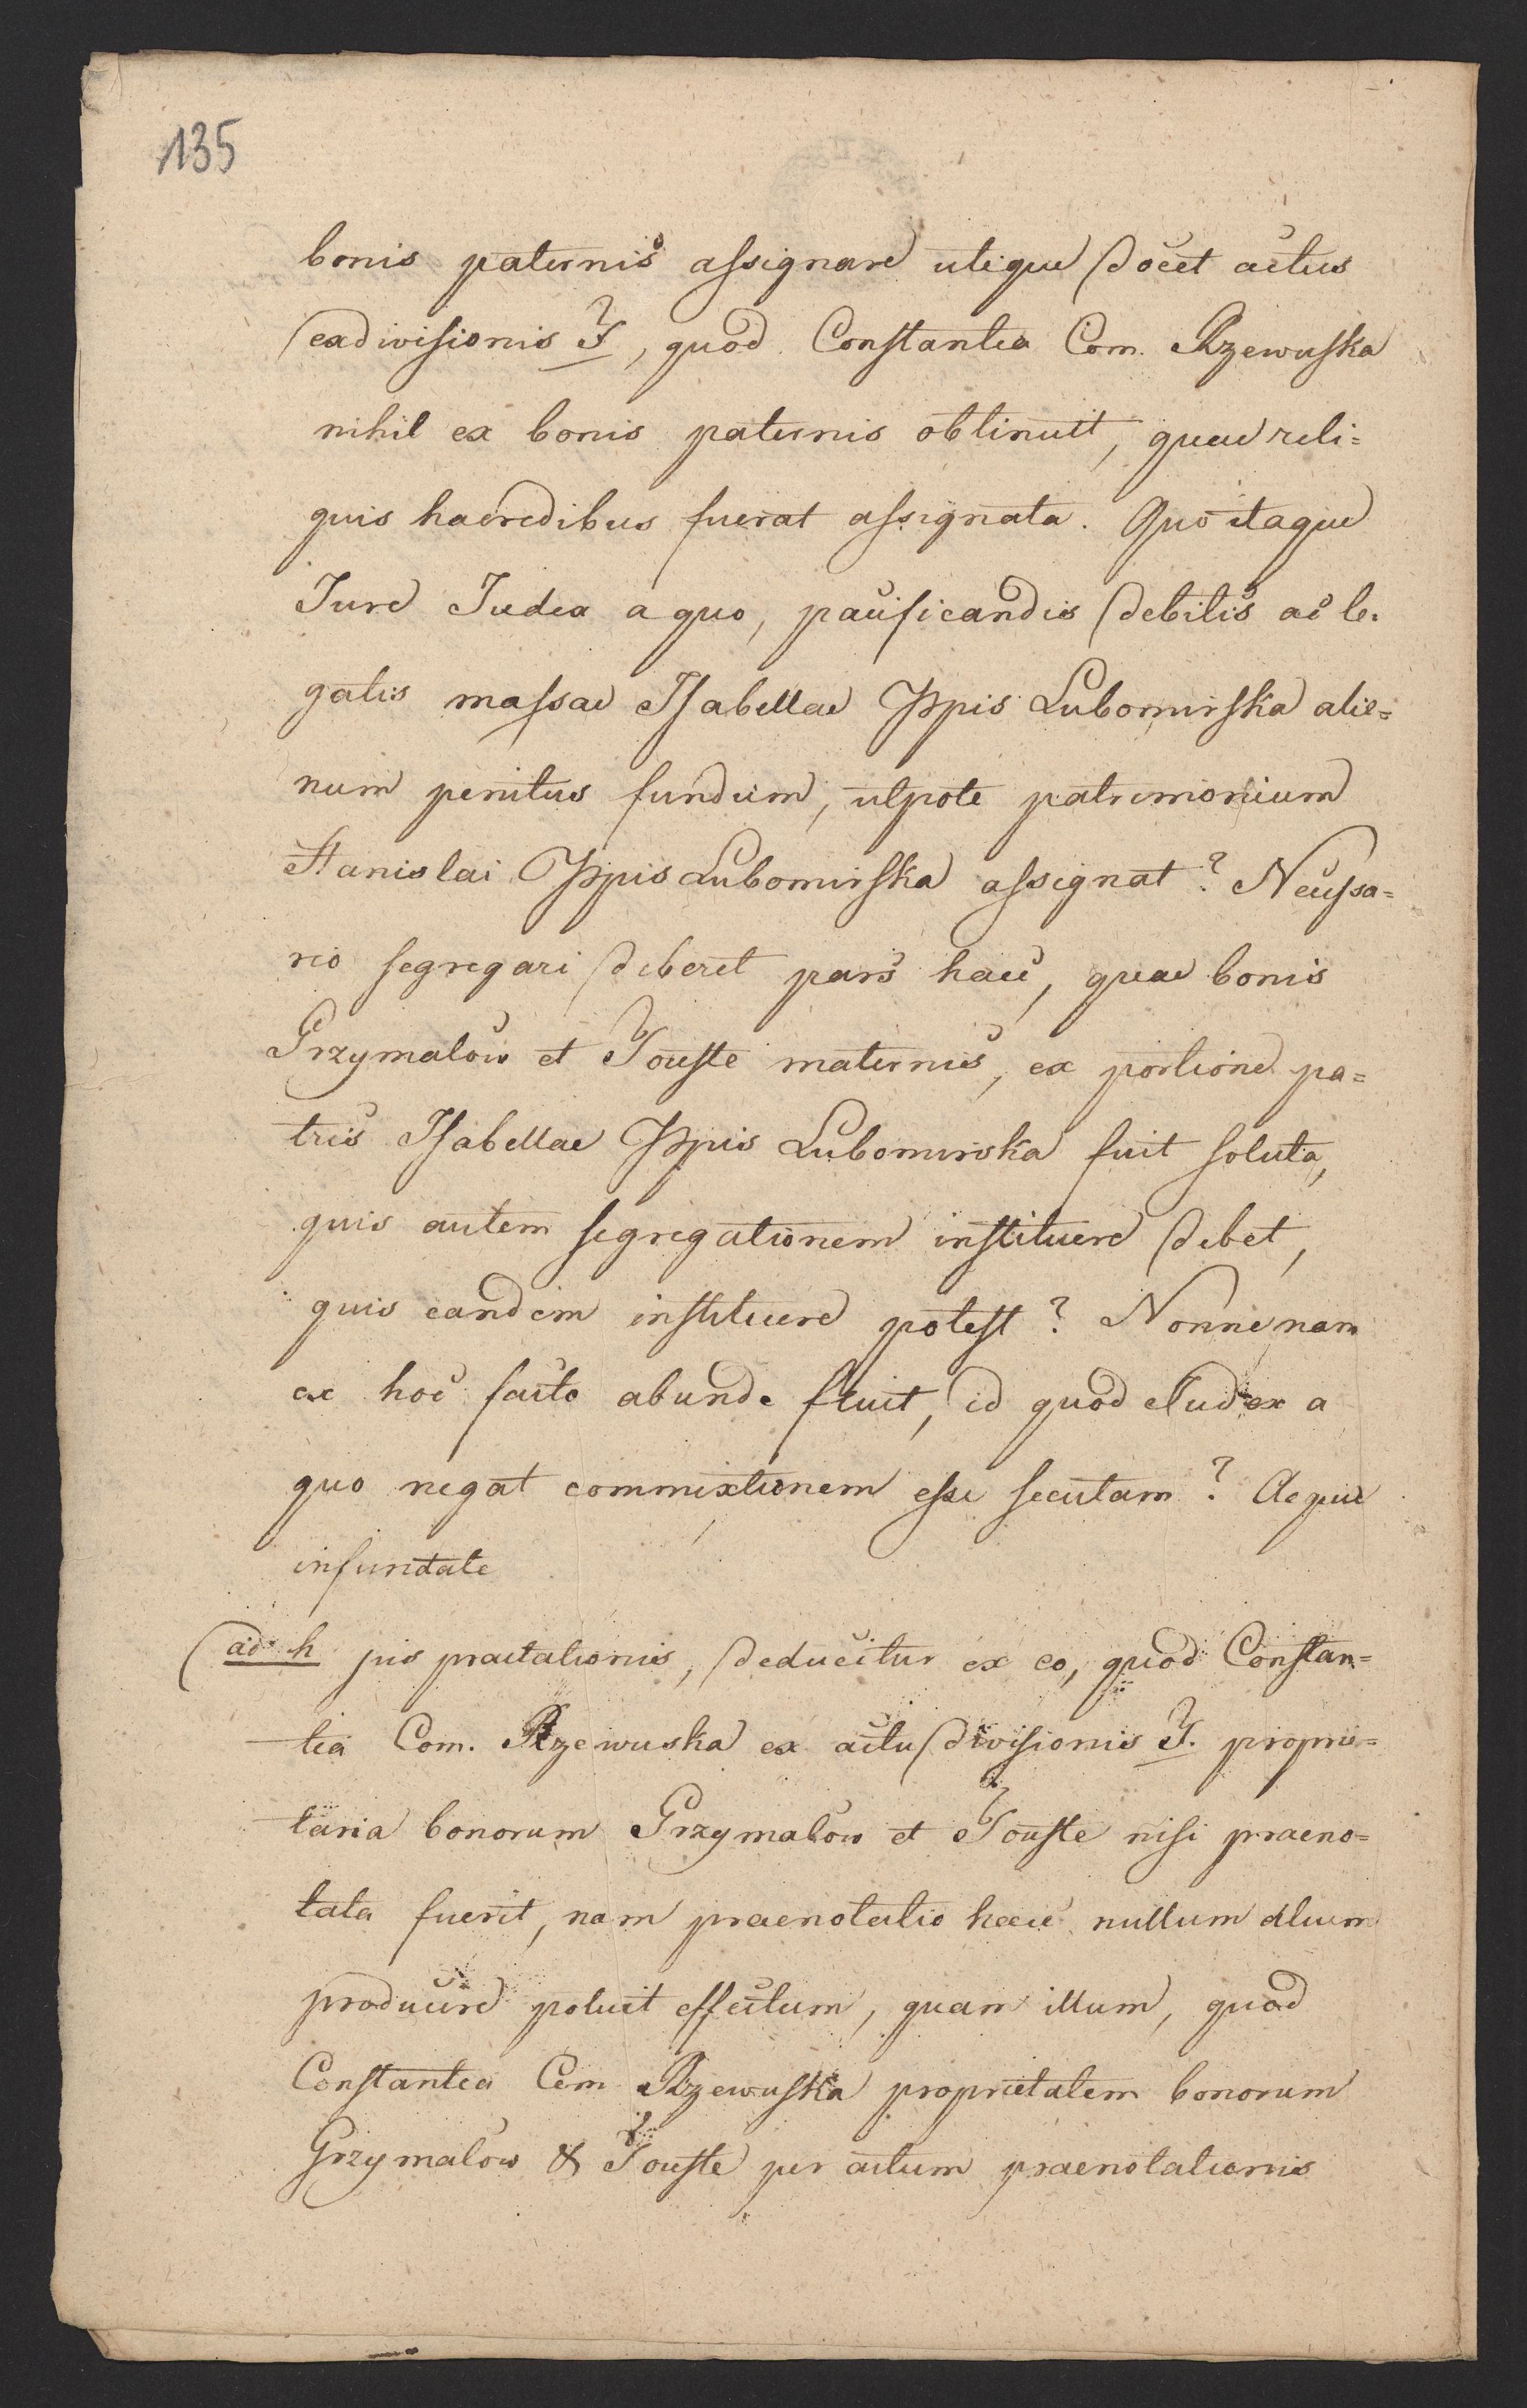 135
bonis paternis assignare utique docet actus
exdivisionis J, quod Constantia Com. Rzewuska
nihil ex bonis paternis obtinuit, quae reli=
quis haeredibus fuerat assignata. Quo itaque
Jure Judex a quo, pacificandis debitis ac le=
gatis massae Isabellae Ppis Lubomirska alie=
num penitus fundum, utpote patrimonium
Stanislai Ppis Lubomirska assignat? Necessa=
rio segregari deberet pars haec, quae bonis
Grzymalow et Touste maternis, ex portione pa=
tris Isabellae Ppis Lubomirska fuit soluta,
quis autem segregationem instituere debet,
quis eandem instituere potest? Nonne nam
ex hoc facto abunde fluit, id quod Judex a
quo negat commixtionem esse secutam? Aeque
infundate
ad h jus praetationis, deducitur ex eo, quod Constan=
tia Com. Rzewuska ex actu divisionis J. proprie=
taria bonorum Grzymalow et Touste nisi praeno=
tata fuerit, nam praenotatio haec nullum alium
producere potuit effectum, quam illum, quod
Constantia Com Rzewuska proprietatem bonorum
Grzymalow & Touste per actum praenotationis